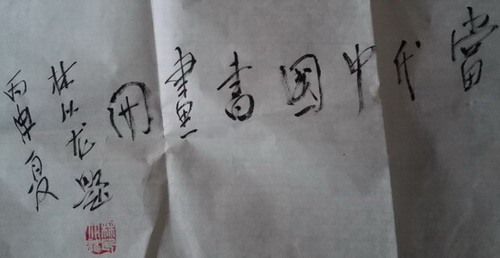 當代中國書畫冊
林从龙题
丙申夏